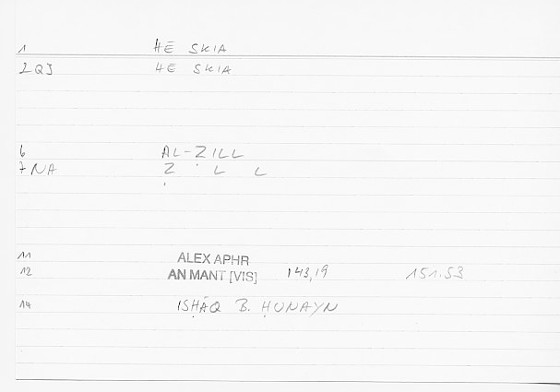 1 HĒ SKIA
2 QJ HE SKIA
6 AL-ẒILL
7 NA Ẓ L L
11 ALEX APHR
12 AN MANT [VIS] 143,19 151.53
14 ISḤĀQ B. ḤUNAYN